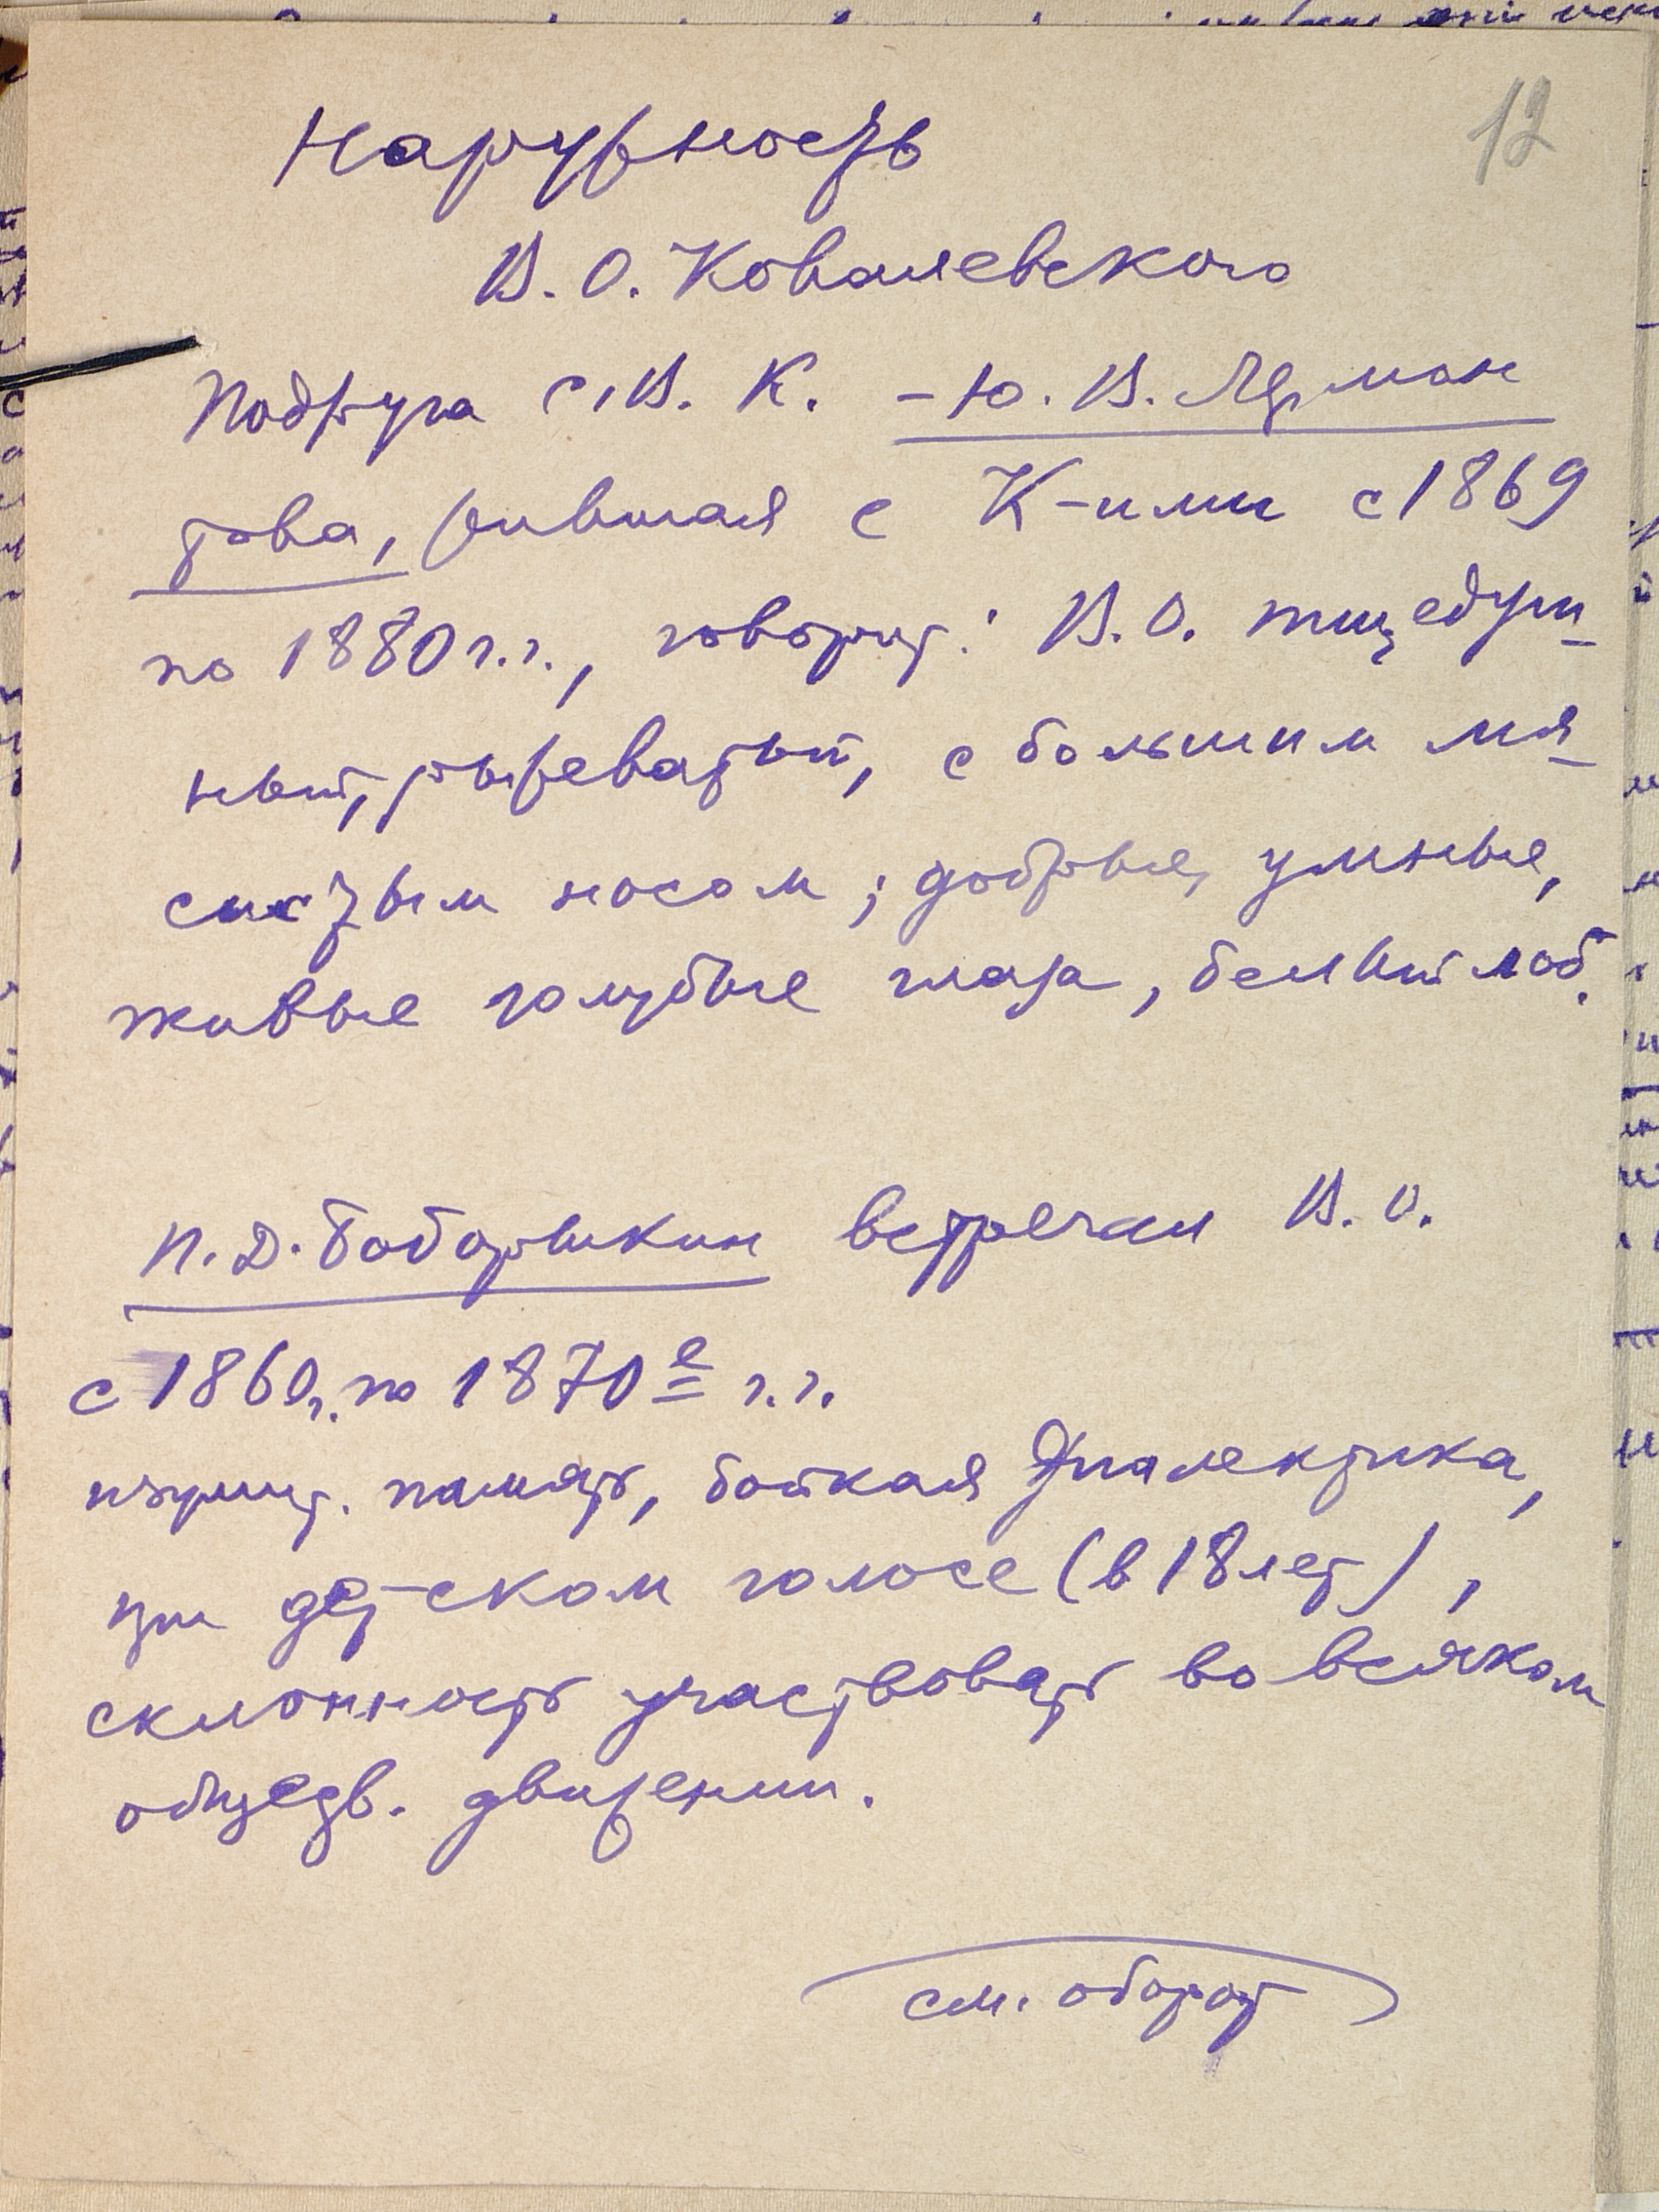 12
Наружность
В. О. Ковалевского
Подруга С. В. К. – Ю. В. Лермон
това, жившая с К-ими с 1869
по 1880 г.г., говорит: В. О. тщедуш-
ный, рыжеватый, с большим мя-
систым носом; добрые, умные,
живые голубые глаза, белый лоб.
П. Д. Боборыкин встречал В. О.
с 1860 г. по 1870е г.г.
изумит. память, бойкая диалектика,
при детском голосе (в 18 лет),
склонность участвовать во всяком
обществ. движении.
см. оборот